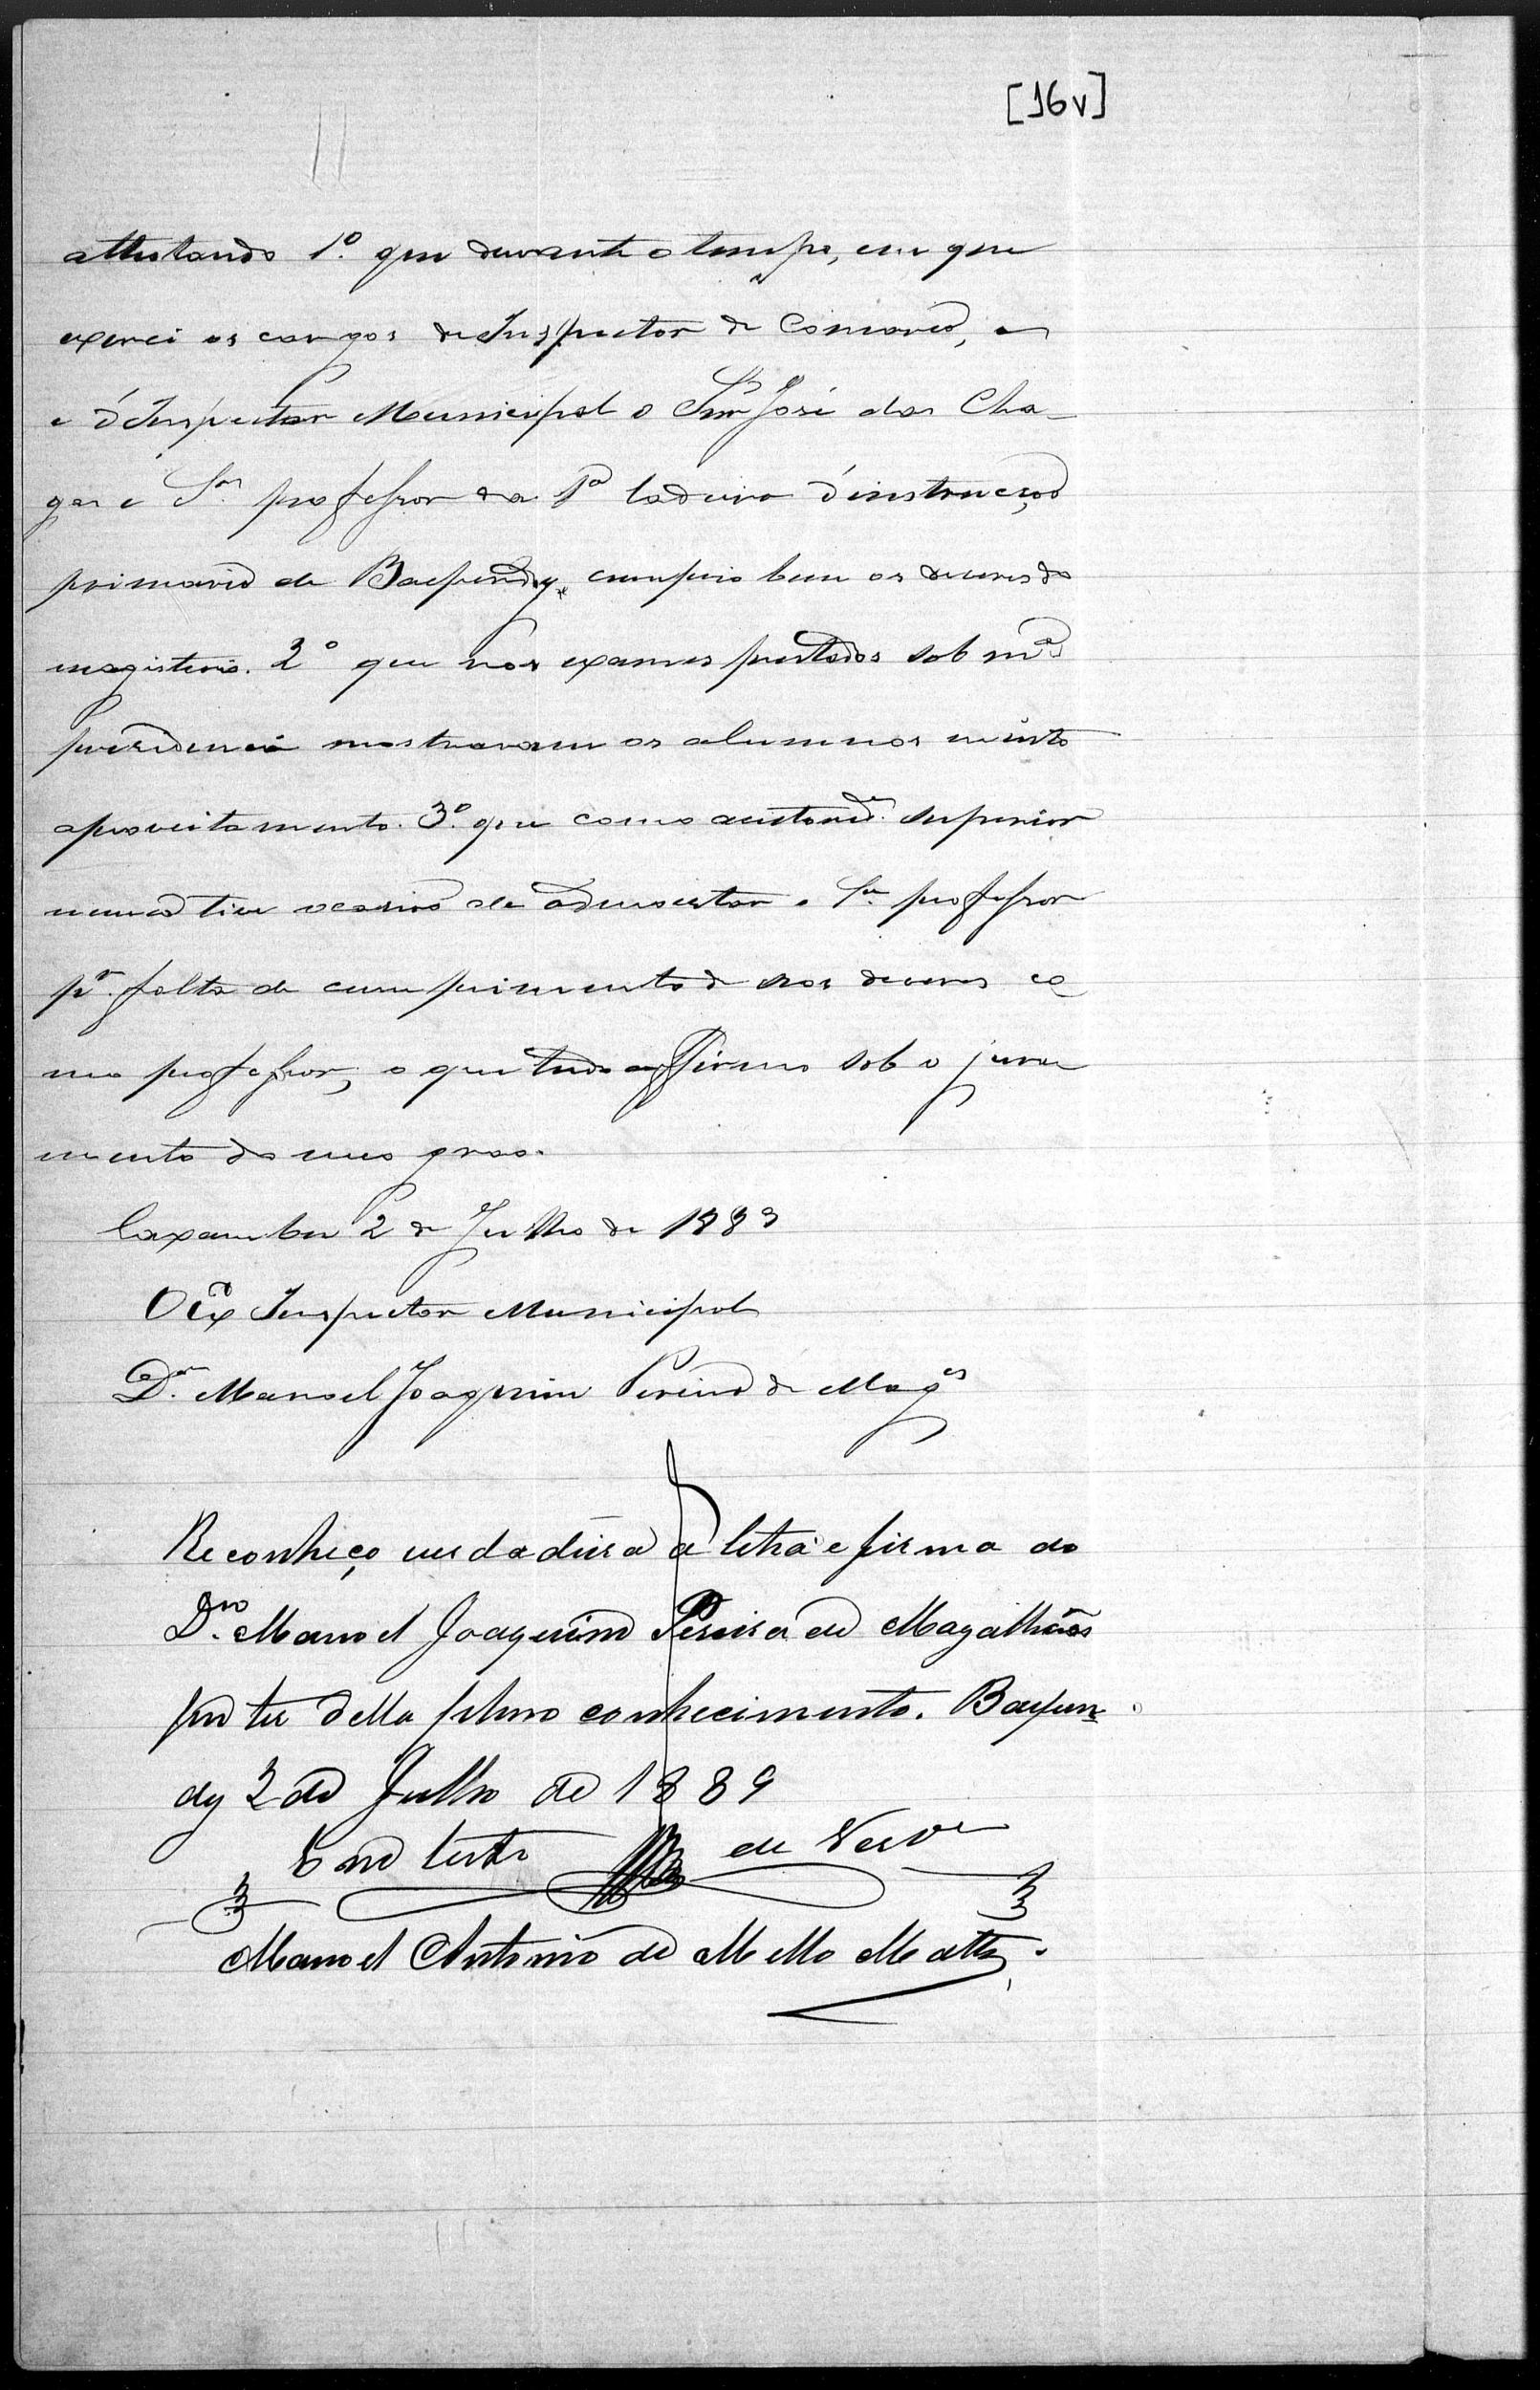 [16v]
attestando 1º. que durante o tempo, em que
exerci os cargos de Inspector de Comarca, e
e d'Inspector Municipal o Snr José das Cha-
gas e Sª professor da 1ª Cadeira d'instrucção
primaria de Baependy, cumprio bem os deveres do
magisterio. 2º que nos exames prestados sob mª
presidencia mostraram os alumnos muito
aproveitamento. 3º. que como autoride. superior
nunca tive occasião de admoestar o Sr. professor
pr. falta de cumprimento de seos deveres co
mo professor, o que tudo affirmo sob o jura
mento do meo grao.
Caxambu 2 de Julho de 1889
O Ex Inspector Municipal
Dr. Manoel Joaquim Pereira de Mages
Reconheço verdadeira a letra e firma do
Dro. Manoel Joaquim Pereira de Magalhães
por ter della pleno conhecimento. Baepen-
dy 2 de Julho de 1889
Em testo de Verde
Manoel Antonio de Mello Mattos.